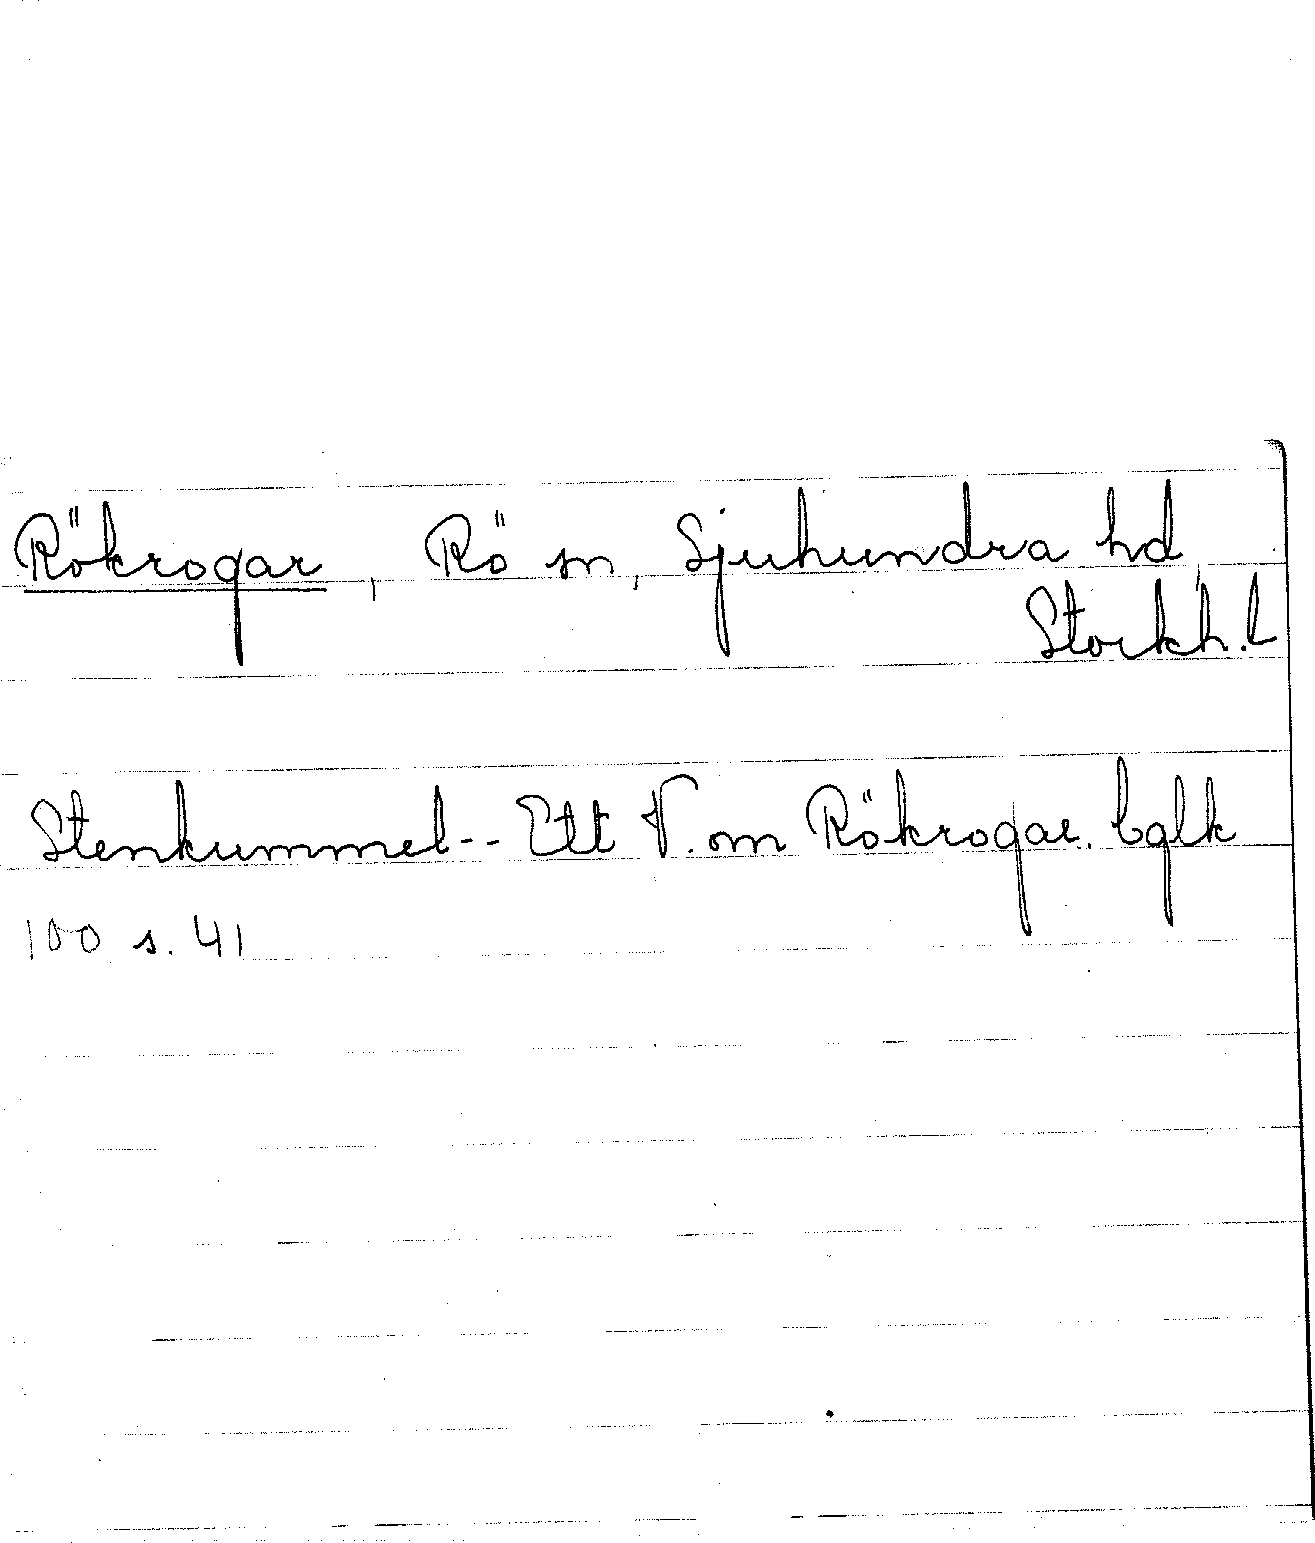 Rökrogar, Rö sn, Sjuhundra hd,
Stockh. L
Stenkummel-- Ett V. om Rökrogar. bglk
100 s. 41